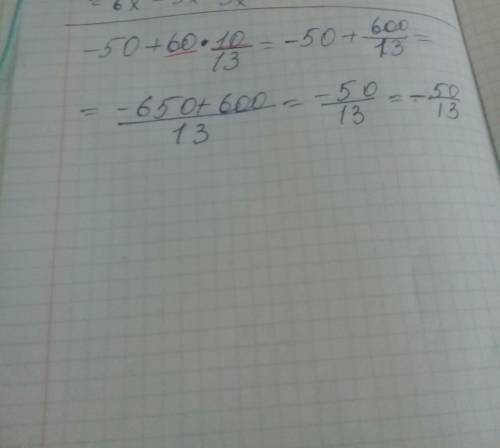 = 6x - 3x
-50+60•10/13 = -50+600/13 =
= -650+600/13 = -50/13 = -50/13